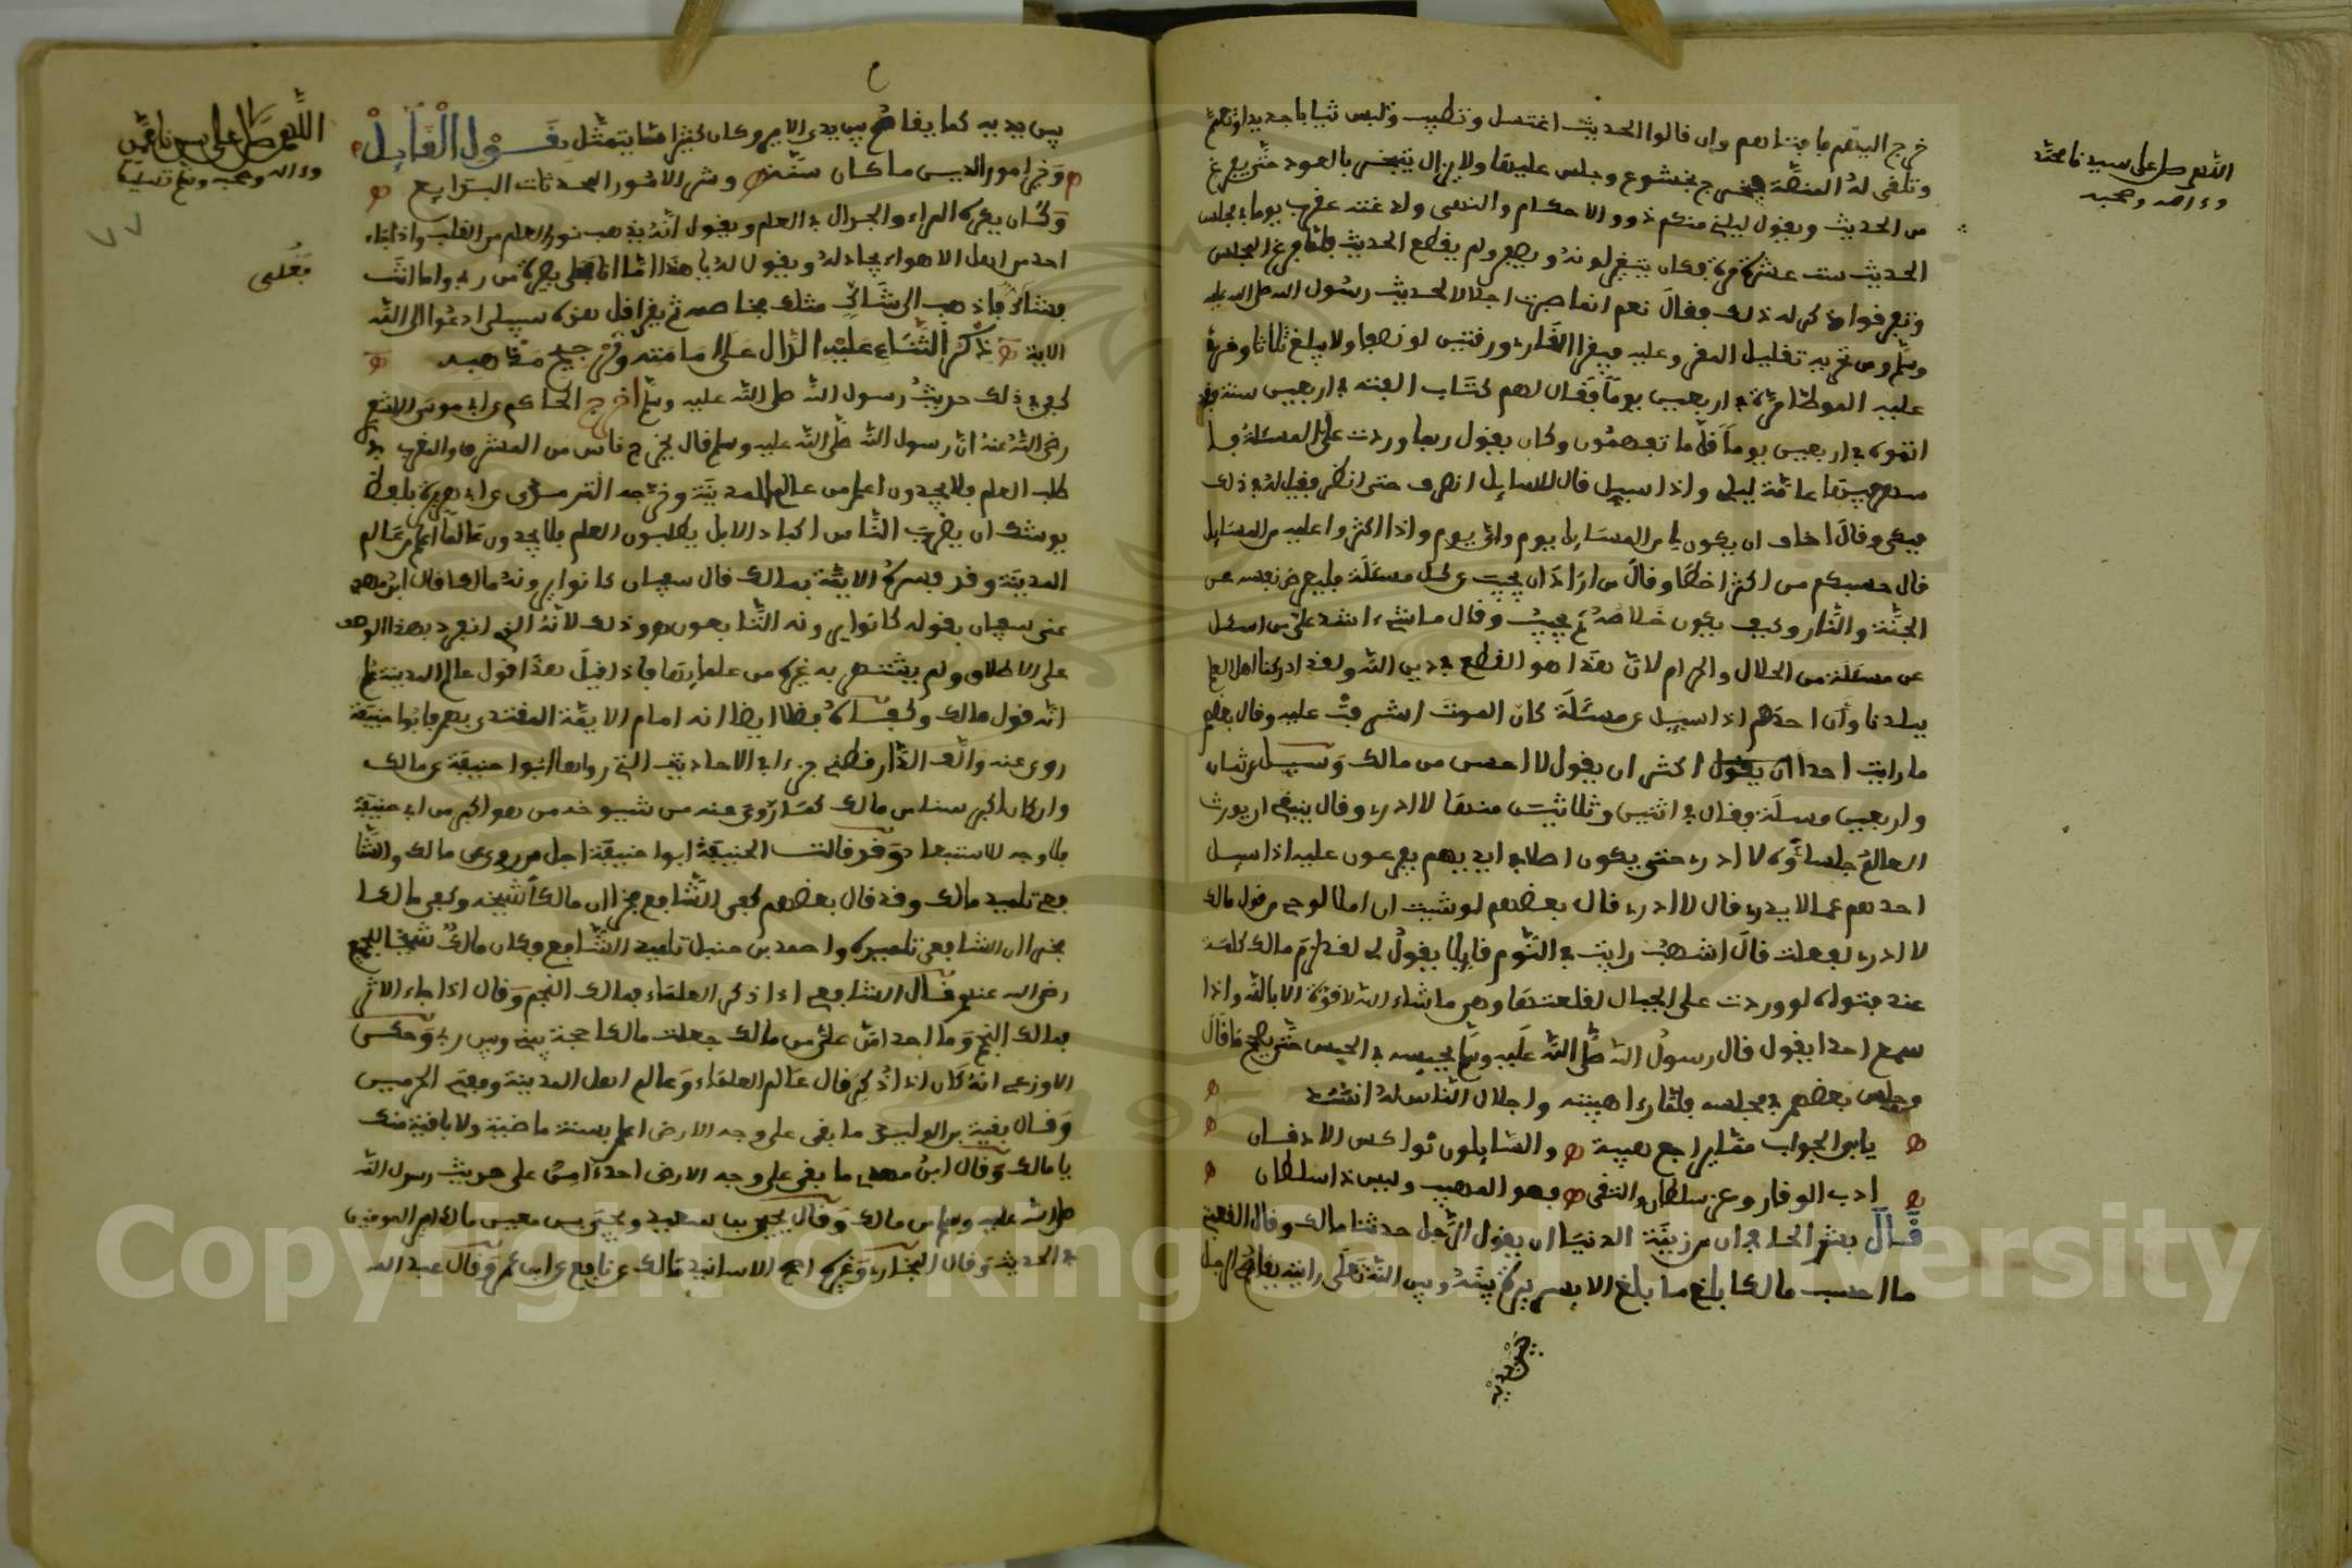 خرج اليهم فافتاهم وان قالوا الحديث اغتسل وتطيب ولبس ثيابا جديدا وتعمم
وتلقى له المنصة فيخرج بخشوع وجلس عليها ولا يزال يتبخر بالعود حتى يفرغ
من الحديث ويقول ليليني منكم ذوو الاحكام والنهى ولدغته عقرب يوما في مجلس
الحديث ست عشرة مرة فكان يتغير لونه ويصفر ولم يقطع الحديث فلما فرغ المجلس
وتفرقوا ذكر له ذلك فقال نعم انما صبرت اجلالا لحديث رسول الله صلى الله عليه
وسلم ومن تحريه تقليل المقروء عليه فيقرا القارئ ورقتين او نحوها ولا يبلغ ثلاثا وقرئ
عليه الموطا مرة في اربعين يوما فقال لهم كتاب الفته في اربعين سنة
اخذتموه في اربعين يوما قل ما تفهمون وكان يقول ربما وردت علي المسئلة فا
سهر فيها عامة ليلي واذا سيل قال للسايل انصرف حتى انظر فقيل له في ذلك
فبكى وقال اخاف ان يكون لي من المسايل يوم واي يوم واذا اكثروا عليه من المسايل
قال حسبكم من اكثر اخطا وقال من اراد ان يجيب عن كل مسئلة فليعرض نفسه على
الجنة والنار وكيف يكون خلاصه ثم يجيب وقال ما شيء اشد علي من ان اسئل
عن مسئلة من الحلال والحرام لان هذا هو القطع في دين الله ولقد ادركنا اهل العلم
ببلدنا وان احدهم اذا سيل عن مسئلة كان الموت اشرفت عليه وقال بعضهم
ما رايت احدا ان يقول اكثر ان يقول لا احسن من مالك وسيل عن ثمان
واربعين مسئلة فقال في اثنين وثلاثين منها لا ادري وقال ينبغي ان يورث
العالم جلساءه لا ادري حتى يكون اصلا في ايديهم يفزعون عليه اذا سيل
احدهم عما لا يدري قال لا ادري قال بعضهم لو شيت ان املا لوحي من قول مالك
لا ادري لفعلت قال اشهب رايت في النوم قايلا يقول لي لقد لزم مالك كلمة
عند فتواه لو وردت على الجبال لقلعتها وهي ما شاء الله لا قوة الا بالله واذا
سمع احدا يقول قال رسول الله صلى الله عليه وسلم يحبسه في الحبس حتى يصحح ما قال
وجلس بعضهم في مجلسه فلما رءا هيبته واجلال الناس له انشد
يابى الجواب فما يراجع هيبة والسايلون نواكس الاذقان
ادب الوقار وعز سلطان التقى فهو المهيب وليس ذا سلطان
قال بشر الحافي ان من زينة الدنيا ان يقول الرجل حدثنا مالك وقال القعنبي
ما احسب مالكا بلغ ما بلغ الا بسريرة بينه وبين الله تعلى رايته يقام الرجل
بين يديه
اللهم صل على سيدنا محمد
وءاله وصحبه
بين يديه كما يقام بين يدي الامير وكان كثيرا ما يتمثل بقول القايل
وخير امور الدين ما كان سنة وشر الامور المحدثات البدايع
وكان يكره المراء والجدال في العلم ويقول انه يذهب نور العلم من القلب واذا جاءه
احد من اهل الاهواء يجادله ويقول له يا هذا اما انا فعلى بصيرة من ربي واما انت
فشاك فاذهب الى شاك مثلك فخاصمه ثم يقرا قل هذه سبيلي ادعوا الى الله
الاية ذكر الثناء عليه الدال على امامته وترجيح مذهبه
كفى في ذلك حديث رسول الله صلى الله عليه وسلم اخرج الحاكم عن ابي موسى الاشعري
رضي الله عنه ان رسول الله صلى الله عليه وسلم قال يخرج ناس من المشرق والمغرب في
طلب العلم فلا يجدون اعلم من عالم المدينة وخرجه الترمذي عن ابي هريرة بلفظ
يوشك ان يضرب الناس اكباد الابل يطلبون العلم فلا يجدون عالما اعلم من عالم
المدينة وقد فسره الايمة بمالك قال سفيان كانوا يرونه مالكا قال ابن مهدي
عنى سفيان بقوله كانوا يرونه التابعون وذلك لانه الذي انفرد بهذا الوصف
على الاطلاق ولم يشتهر به غيره من علمايها فاذا قيل هذا قول عالم المدينة علم
انه قول مالك وكفاه فضلا ايضا انه امام الايمة المقتدى بهم فابوا حنيفة
روى عنه والف الدارقطني جزءا في الاحاديث التي رواها ابوا حنيفة عن مالك
وان كان اكبر سنا من مالك كما روى عنه من شيوخه من هو اكبر من ابي حنيفة
فلا وجه للاستبعاد وقد قالت الحنيفة ابوا حنيفة اجل من روى عن مالك والشا
فعي تلميذ مالك وقد قال بعضهم كفى الشافعي فخرا ان مالكا شيخه وكفى مالكا
فخرا ان الشافعي تلميذه واحمد بن حنبل تلميذ الشافعي فكان مالك شيخا للجميع
رضي الله عنهم قال الشافعي اذا ذكر العلماء فمالك النجم وقال اذا جاء الاثر
فمالك النجم وما احد امن علي من مالك جعلت مالكا حجة بيني وبين ربي وحكى
الاوزعي انه كان اذا ذكره قال عالم العلماء وعالم اهل المدينة ومفتي الحرمين
وقال بقية بن الوليد ما بقى على وجه الارض اعلم بسنة ماضية ولا باقية منك
يا مالك وقال ابن مهدي ما بقى على وجه الارض احد امن على حديث رسول الله
صلى الله عليه وسلم من مالك وقال يحيى بن سعيد ويحيى بن معين مالك امير المومنين
في الحديث وقال البخاري وغيره اصح الاسانيد مالك عن نافع عن ابن عمر وقال عبد الله
اللهم صل على سيدنا محمد
وءاله وصحبه وسلم تسليما
فعلى